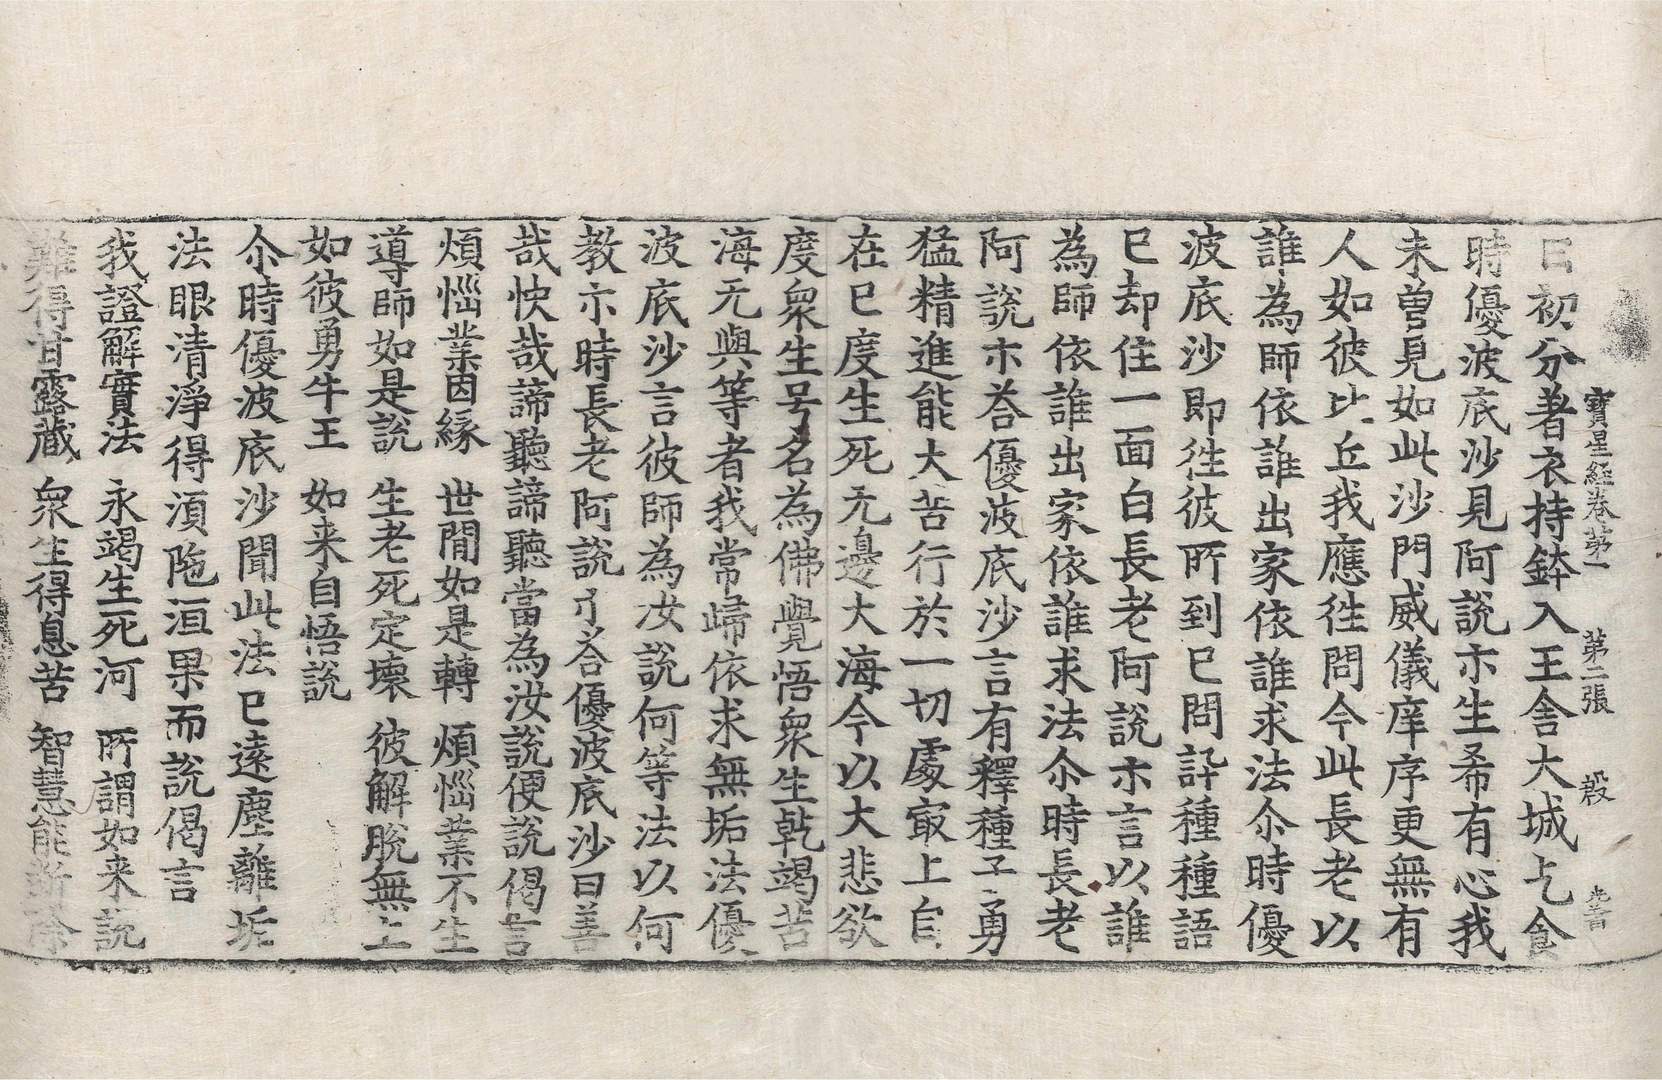 寶星經卷第一　第二張　㲉　光音
日初分著衣持鉢入王舍大城乞食
時優波底沙見阿說示生希有心我
未曾見如此沙門威儀庠序更無有
人如彼比丘我應徃問今此長老以
誰為師依誰出家依誰求法尒時優
波底沙即徃彼所到已問訊種種語
已却住一面白長老阿說示言以誰
為師依誰出家依誰求法尒時長老
阿說示荅優波底沙言有釋種子勇
猛精進能大苦行於一切處㝡上自
在已度生死无邊大海今以大悲欲
度衆生号名為佛覺悟衆生乾竭苦
海无與等者我常歸依求無垢法優
波底沙言彼師為汝說何等法以何
教示時長老阿說示荅優波底沙曰善
哉快哉諦聽諦聽當為汝說便說偈言
煩惱業因緣　世間如是轉　煩惱業不生
導師如是說　生老死定壞　彼解脫無上
如彼勇牛王　如来自悟說
尒時優波底沙聞此法已遠塵離垢
法眼清淨得湏陁洹果而說偈言
我證解實法　永竭生死河　所謂如来說
難得甘露藏　衆生得息苦　智慧能斷除